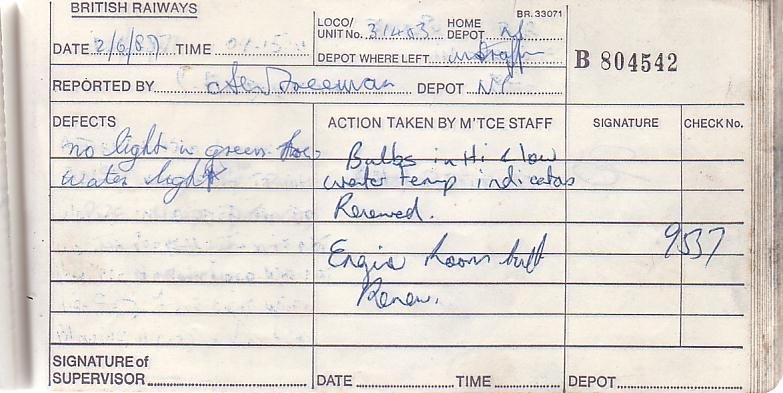 BRITISH RAIWAYS
BR. 33071
LOCO/ UNIT No. 31403 HOME DEPOT
DATE 2/6/87 TIME 01.15
DEPOT WHERE LEFT
B 804542
REPORTED BY Freeman DEPOT NC
DEFECTS
ACTION TAKEN BY M'TCE STAFF
SIGNATURE
CHECK No.
no light in green
water light
Bulbs in Hi & low
water temp indicators
Renewed.
9537
Engine Room bulb
Renew.
SIGNATURE of
SUPERVISOR
DATE TIME
DEPOT